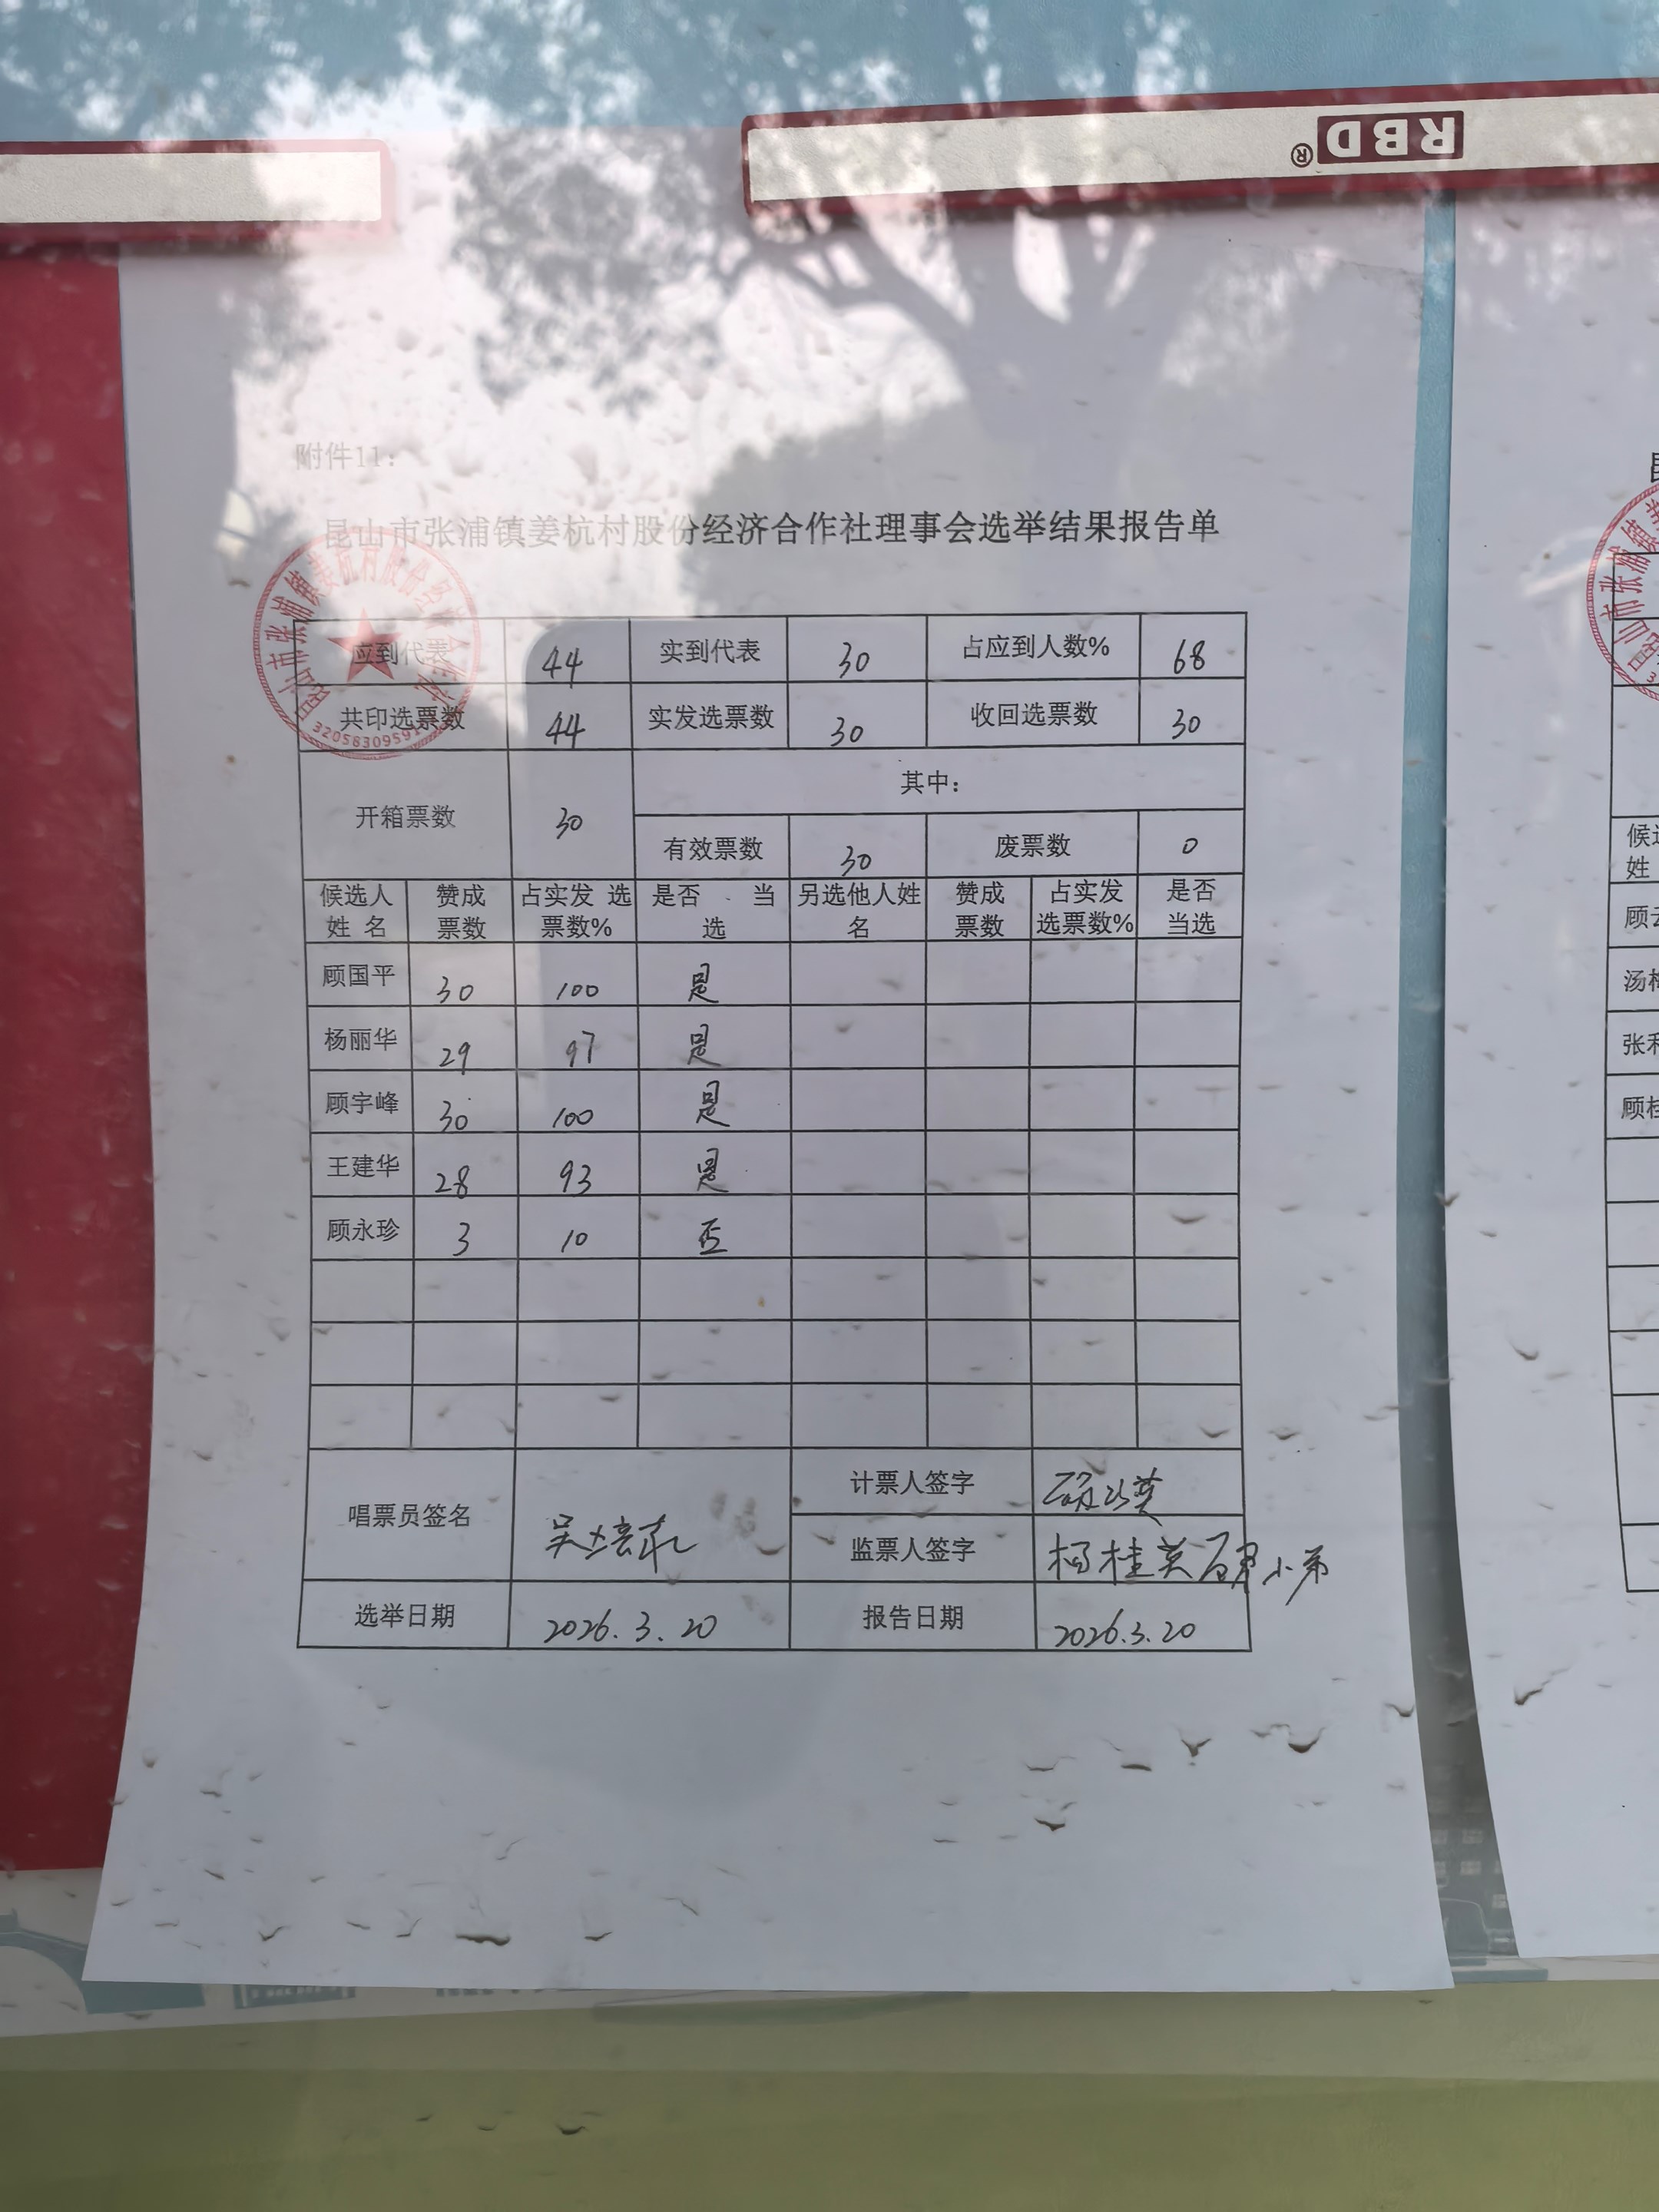 RBD®
附件11:
昆山市张浦镇姜杭村股份经济合作社理事会选举结果报告单
应到代表 44 实到代表 30 占应到人数% 68
共印选票数 44 实发选票数 30 收回选票数 30
开箱票数 30 其中:
有效票数 30 废票数 0
候选人姓 名 赞成票数 占实发 选票数% 是否 当选 另选他人姓名 赞成票数 占实发选票数% 是否当选
顾国平 30 100 是
杨丽华 29 97 是
顾宇峰 30 100 是
王建华 28 93 是
顾永珍 3 10 否
唱票员签名 计票人签字
监票人签字 杨桂英 小弟
选举日期 2026.3.20 报告日期 2026.3.20
昆山市张浦镇姜杭村股份经济合作社
32058309591
昆山市张浦镇
候选
姓
顾
汤
张
顾桂